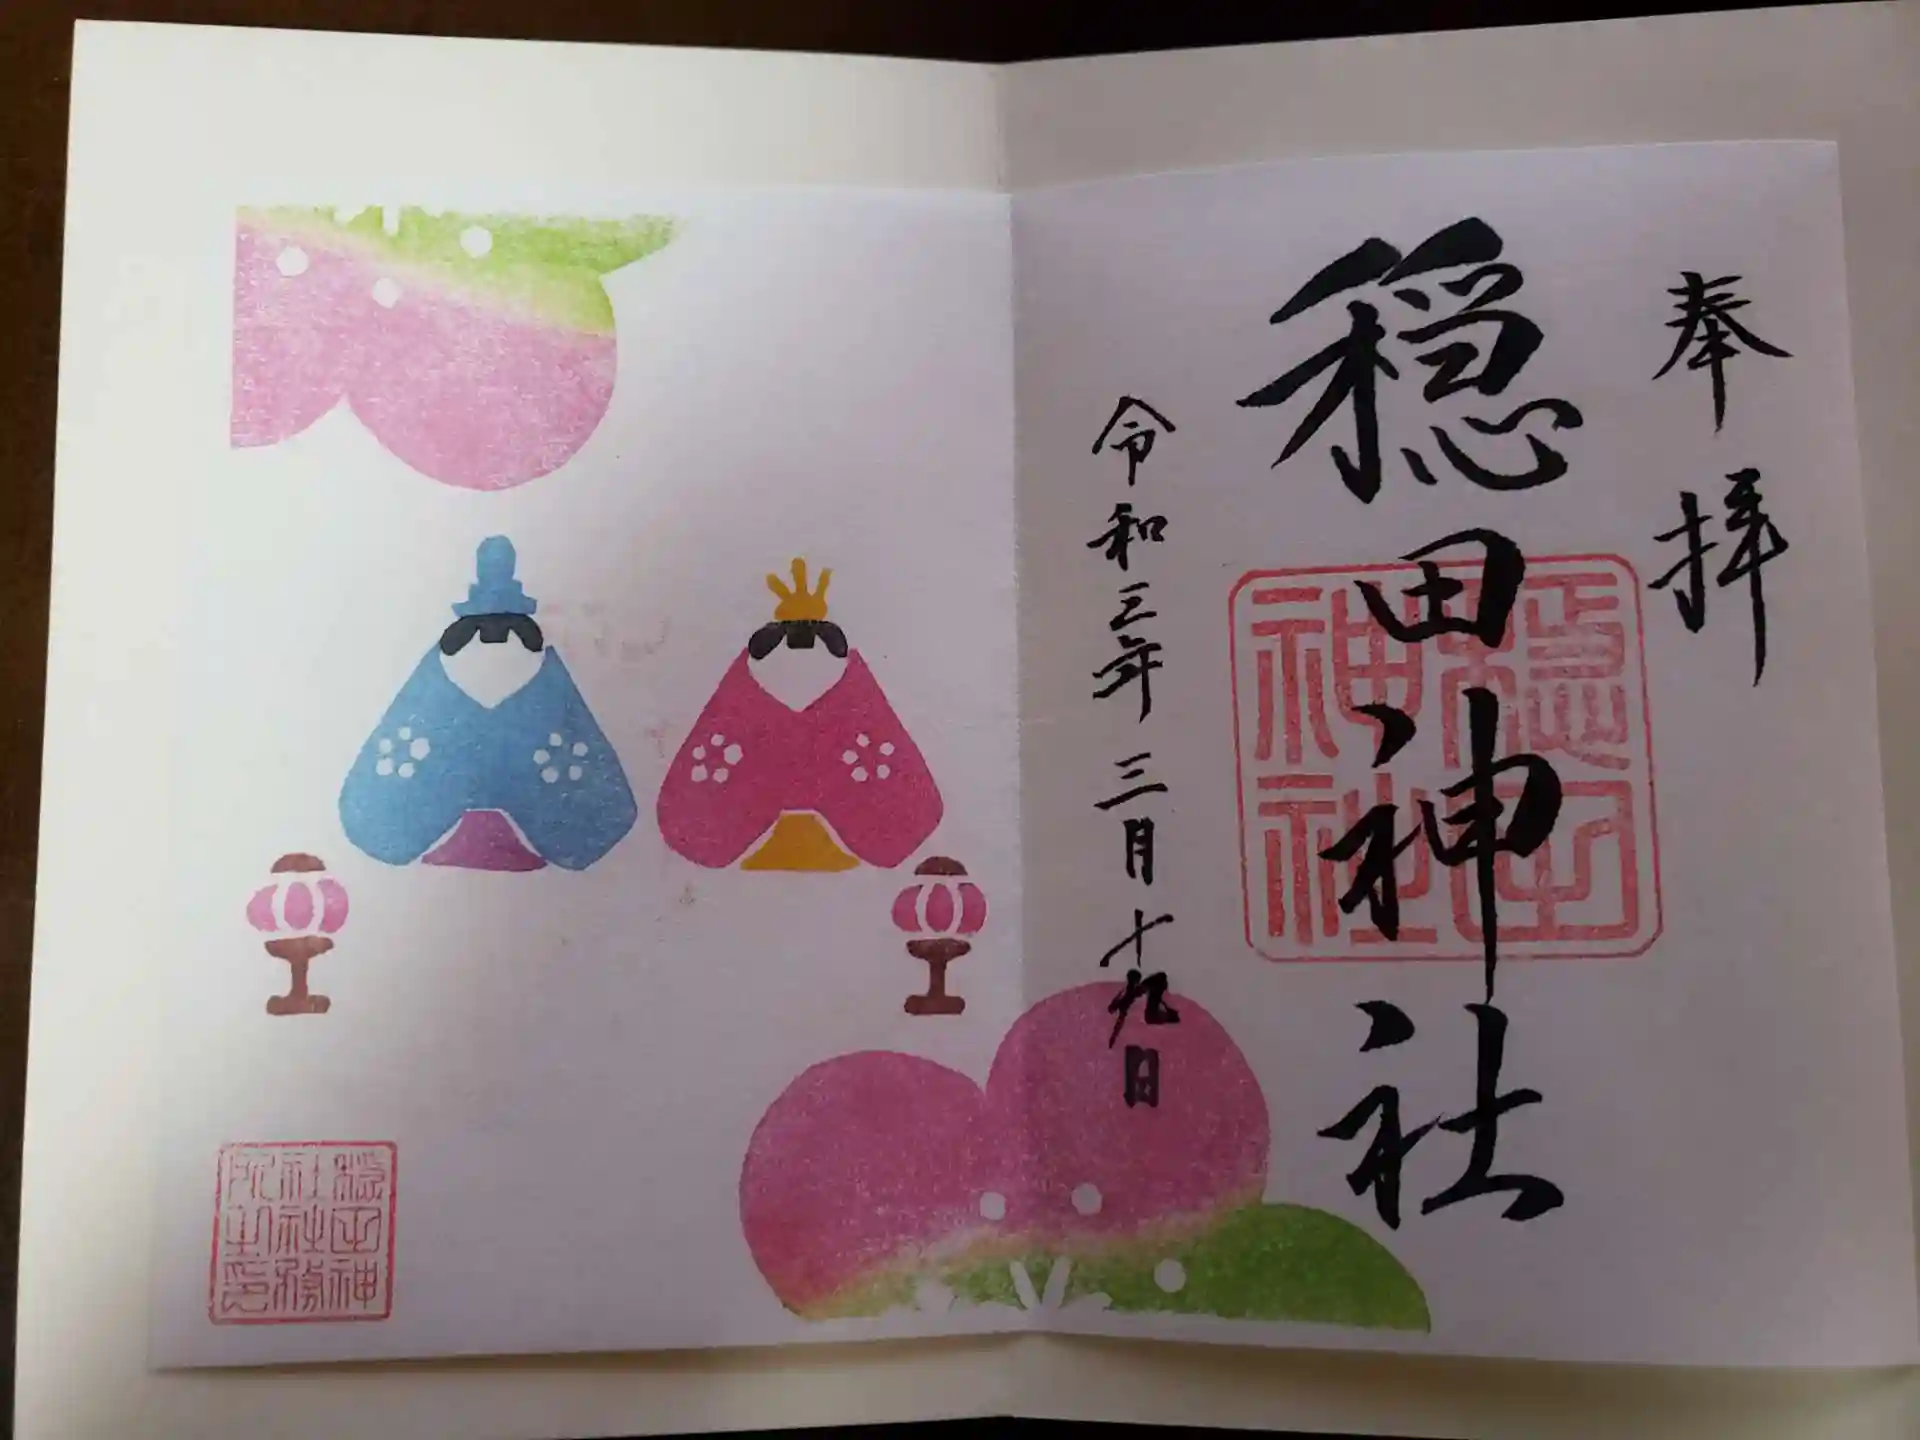 奉拝
穏田神社
穏田神社
令和三年三月十九日
穏田神
社社務
所之印